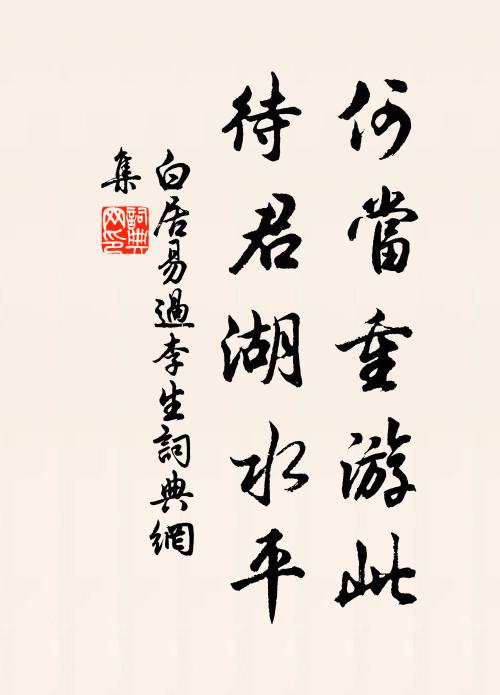 何當重游此
待君湖水平
白居易過李生詞典網
集
詞典
网印